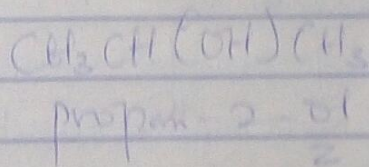 CH₃CH(OH)CH₃
propan-2-ol
2